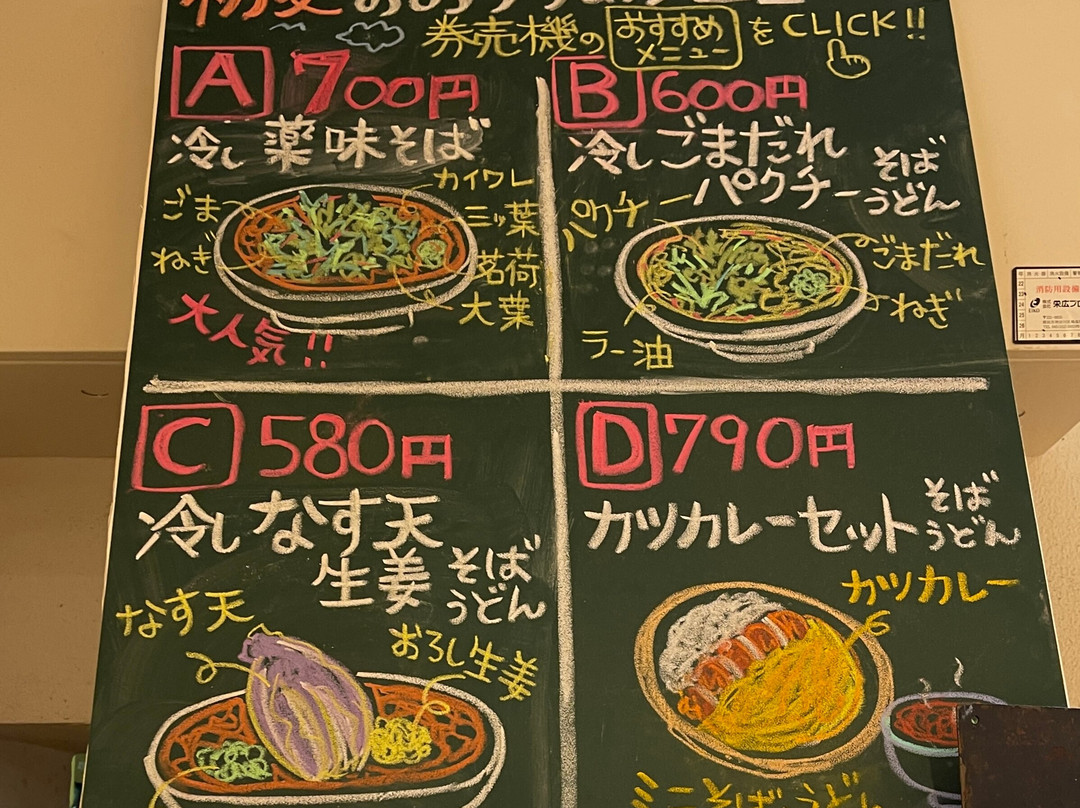 券売機の おすすめメニュー を CLICK!!
A 700円
冷し 薬味そば
カイワレ
ごま
三ッ葉
ねぎ
茗荷
大葉
大人気!!
B 600円
冷しごまだれ
パクチー そば うどん
パクチー
ごまだれ
ねぎ
ラー油
C 580円
冷しなす天
生姜 そば うどん
なす天
おろし生姜
D 790円
カツカレーセット そば うどん
カツカレー
ミニそばうどん
消防用設備
栄広プロ